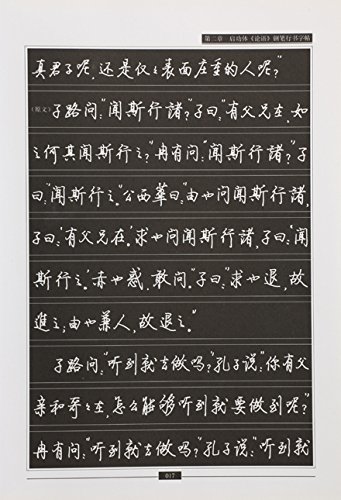 第二章 启功体《论语》钢笔行书字帖
真君子呢，还是仅仅表面庄重的人呢？”
（原文）子路问：“闻斯行諸？”子曰：“有父兄在，如
之何其闻斯行之？”冉有问：“闻斯行諸？”子
曰：“闻斯行之。”公西華曰：“由也问闻斯行諸，
子曰：‘有父兄在。’求也问闻斯行諸，子曰：‘闻
斯行之’。赤也惑，敢问。”子曰：“求也退，故
進之；由也兼人，故退之。”
子路问：“听到就去做吗？”孔子说：“你有父
亲和哥哥在，怎么能够听到就要做到呢？”
冉有问：“听到就去做吗？”孔子说：“听到就
017